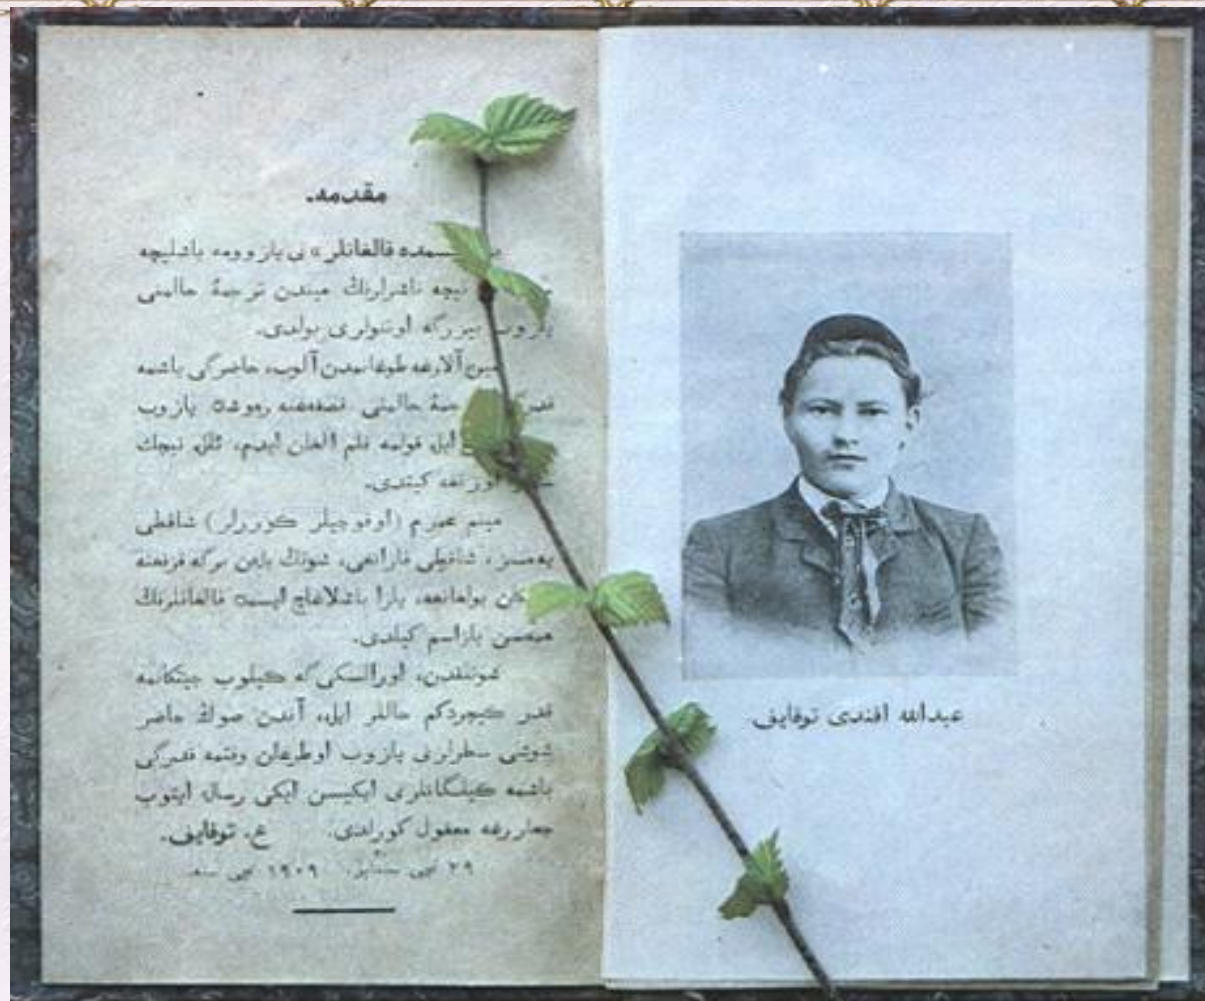 مقدمه.
قالغانلر» نی یازوومه باشلیچه
نیچه ناشرلرنڭ میندن ترجمهٔ حالمنی
یازوب بیررگه اوتنولری بولدی.
آلارغه طوغانمدن آلوب، حاضرگی یاشمه
حالمنی یازوب
قولمه قلم آلغان ایدم،
کیتدی.
مینم عمرم (اوقوچیلر کوررلر) شاقطی
یهمسز، شاقطی قارانغی، شونڭ بلهن برگه
بولغانغه، یازا باشلاغاچ ایسمده قالغانلرنڭ
یازاسم کیلدی.
شونلقدن، اورالسکی گه کیلوب جیتکانمه
قدر کیچردکم حاللر ایله، آندن صوڭ حاضر
شوشی سطرلرنی یازوب اوطرغان وقتمه قدرگی
باشمه کیلگانلرنی ایکیسن ایکی رساله ایتوب
چغاررغه معقول کورلدی. ع. توقایف.
٢٩ نچی سنتابر. ١٩٠٩ نچی سنه.
عبدالله افندی توقایف